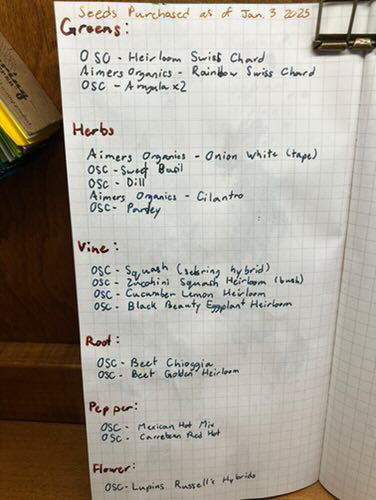 Seeds Purchased as of Jan. 3 2025
Greens:
OSO - Heirloom Swiss Chard
Aimers Organics - Rainbow Swiss Chard
OSC - Arugula x2
Herbs
Aimers Organics - Onion White (tape)
OSC - Sweet Basil
OSC - Dill
Aimers Organics - Cilantro
OSC - Parsley
Vine:
OSC - Squash (sebring hybrid)
OSC - Zucchini Squash Heirloom (bush)
OSC - Cucumber Lemon Heirloom
OSC - Black Beauty Eggplant Heirloom
Root:
OSC - Beet Chioggia
OSC - Beet Golden Heirloom
Pepper:
OSC - Mexican Hot Mix
OSC - Carrebean Red Hot
Flower:
OSC - Lupins Russell's Hybrids